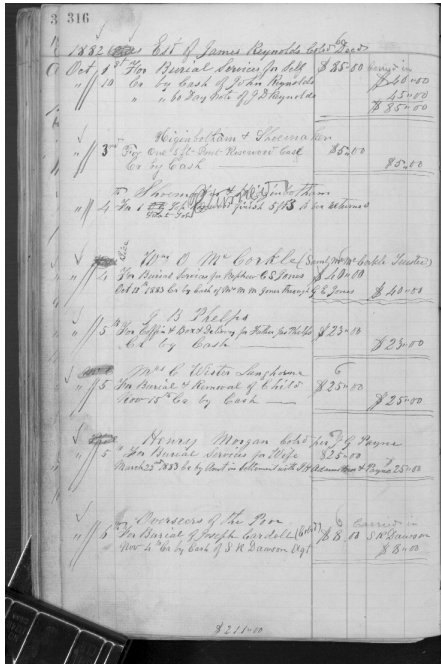 316
1882 Est of James Reynolds Cold Decd
Oct 1st For Burial Services for Self $85.00 Carried in
" 10 Cr by Cash of John Reynolds $40.00
" " 60 Day Note of J D Reynolds 45.00
$85.00
" 3rd Higinbotham & Shoemaker
For One 5 ft Reservoir Case $5.00
Cr by Cash $5.00
" 4 For 1 finish 5/13 to be returned
Wm O McCorkle
" 4 For Burial Services for Nephew C S Jones $40.00
Oct 12th 1883 Cr by Cash of Mr M M Jones Through G E Jones $40.00
J B Phelps
" 5th For Coffin & Box & Delivery for Father Jas Phelps $23.00
Cr by Cash $23.00
Mrs C Wister Langhorne
" 5 For Burial & Removal of Child $25.00
Nov 15th Cr by Cash $25.00
Henry Morgan Cold per J G Payne
" 5th For Burial Services for Wife $25.00
March 23rd 1883 Cr by Amt in Settlement with Adams & Payne 25.00
Overseers of the Poor Carried in
" 6th For Burial of Joseph Cardell (Cold) $8.00 S R Dawson
Nov 4th Cr by Cash of S R Dawson Agt $8.00
$211.00